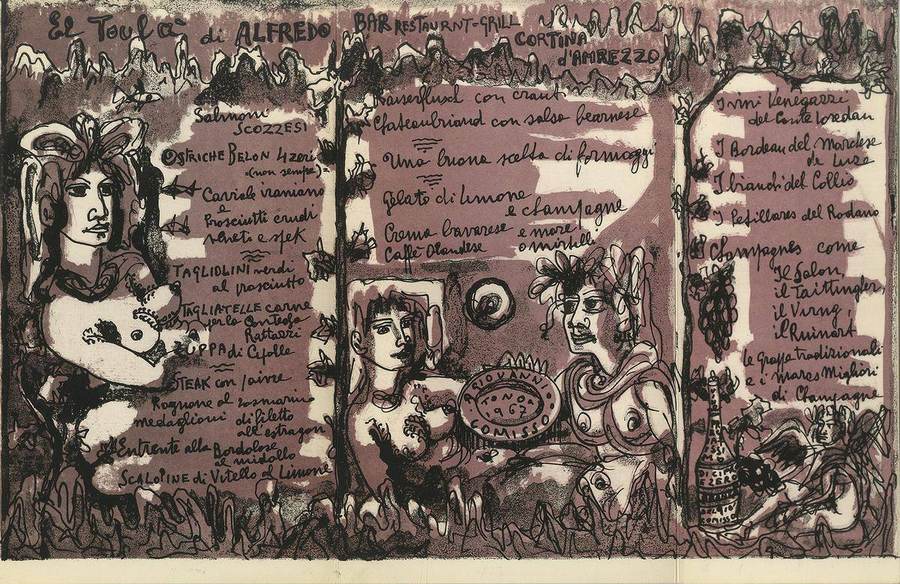 El Toulà di ALFREDO
BAR RESTAURNT-GRILL
CORTINA
d'AMPEZZO
Salmone
SCOZZESI
OSTRICHE BELON 4 zeri
(non sempre)
Caviale iraniano
e
Prosciutti crudi
veneto e spek
TAGLIOLINI verdi
al prosciutto
TAGLIATELLE carne
per la Contessa
Rattazzi
ZUPPA di Cipolle
STEAK con poivre
Rognone al rosmarino
medaglioni di filetto
all'estragon
Entrente alla Bordolose
al midollo
SCALOPINE di Vitello al Limone
con crauti
Chateaubriand con salsa bearnese
Una buona scelta di formaggi
Gelato di Limone
e champagne
Crema bavarese e more
o mirtilli
Caffè Olandese
GIOVANNI
TONON
1967
COMISSO
I vini Venegazzi
del Conte Loredan
I Bordeau del Marchese
de Luze
I bianchi del Collio
I Petillares del Rodano
Champagnes come
Il Salon,
il Taittinger,
il Ruinart
le Grappe tradizionali
e i mares Migliori
di Champagne